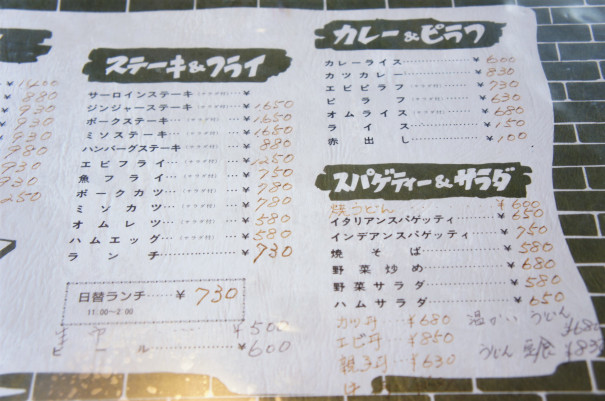 1400
880
930
930
930
780
930
930
250
ステーキ&フライ
サーロインステーキ(サラダ付)…¥
ジンジャーステーキ(サラダ付)…¥1650
ポークステーキ(サラダ付)…¥1650
ミソステーキ(サラダ付)…¥1650
ハンバーグステーキ(サラダ付)…¥880
エビフライ(サラダ付)…¥1250
魚フライ(サラダ付)…¥750
ポークカツ(サラダ付)…¥780
ミソカツ(サラダ付)…¥780
オムレツ(サラダ付)…¥580
ハムエッグ(サラダ付)…¥580
ランチ…¥730
日替ランチ…¥730
11:00~2:00
¥500
ビール…¥600
カレー&ピラフ
カレーライス…¥600
カツカレー…¥830
エビピラフ…¥730
ピラフ…¥630
オムライス…¥680
ライス…¥150
赤出し…¥100
スパゲティー&サラダ
焼うどん…¥600
イタリアンスパゲッティ…¥650
インデアンスパゲッティ…¥750
焼そば…¥580
野菜炒め…¥680
野菜サラダ…¥580
ハムサラダ…¥650
カツ丼…¥680
エビ丼…¥850
親子丼…¥630
温かいうどん
¥680
うどん定食 ¥830